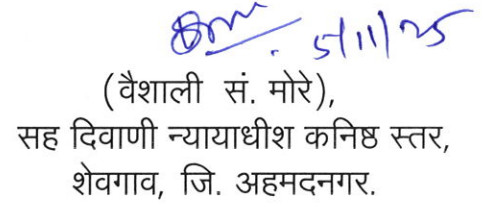 5/11/25
(वैशाली सं. मोरे),
सह दिवाणी न्यायाधीश कनिष्ठ स्तर,
शेवगाव, जि. अहमदनगर.